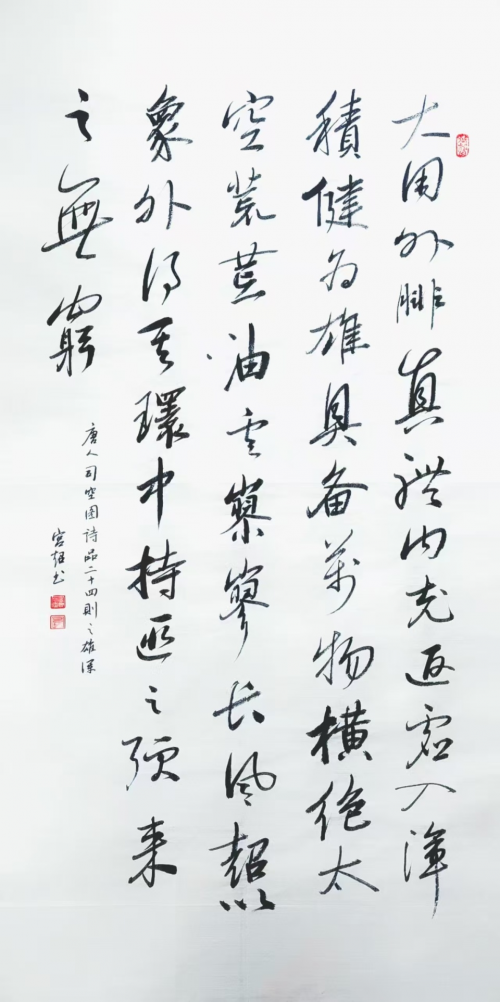 大用外腓真體内充返虚入渾
積健为雄具备萬物横绝太
空荒荒油雲寥寥长风超以
象外得其環中持匪之强来
之無窮
唐人司空图詩品二十四則之雄渾
宫书